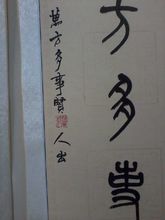 方多事
萬方多事賢人出